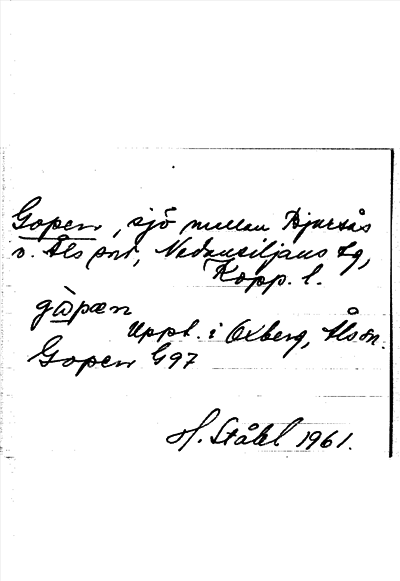 Gopen, sjö mellan Bjursås
o. Åls snr, Nedansiljans tg,
Kopp. l.
gὼpæn
Uppt. i Oxberg, Åls sn.
Gopen G97
H. Ståhl 1961.